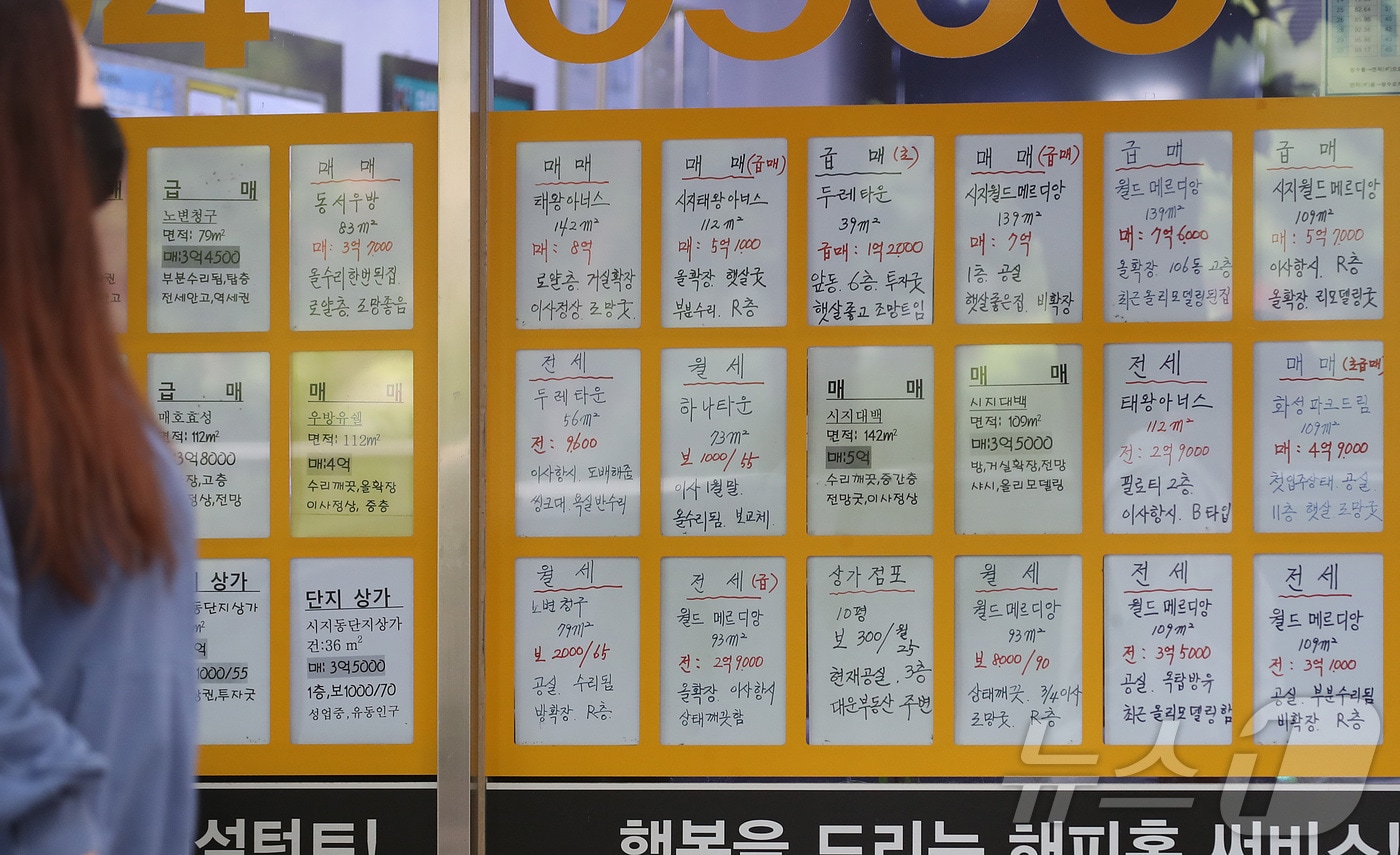 급 매
노변청구
면적: 79m²
매:3억4500
부분수리됨,탑층
전세안고,역세권
매 매
동서우방
83m²
매: 3억 7,000
올수리한번된집.
로얄층. 조망좋음
매 매
태왕아너스
142m²
매: 8억
로얄층. 거실확장
이사정상 조망굿.
매 매(급매)
시지태왕아너스
112m²
매: 5억 1,000
올확장. 햇살굿
부분수리. R층
급 매(초)
두레타운
39m²
급매: 1억 2,000
앞동. 6층. 투자굿
햇살좋고 조망트임
매 매(급매)
시지월드메르디앙
139m²
매: 7억
1층. 공실
햇살좋은집. 비확장
급 매
월드메르디앙
139m²
매: 7억 6,000
올확장. 106동 고층
최근올리모델링된집
급 매
시지월드메르디앙
109m²
매: 5억 7,000
이사항시. R층
올확장. 리모델링굿
급 매
매호효성
면적: 112m²
3억8000
장,고층
상,전망
매 매
우방유쉘
면적: 112m²
매:4억
수리깨끗,올확장
이사정상, 중층
전 세
두레타운
56m²
전: 9,600
이사항시. 도배해줌
씽크대. 욕실반수리
월 세
하나타운
73m²
보 1000/55
이사 1월말.
올수리됨. 보교체.
매 매
시지대백
면적: 142m²
매:5억
수리깨끗,중간층
전망굿,이사정상
매 매
시지대백
면적: 109m²
매:3억5000
방,거실확장,전망
샤시,올리모델링
전 세
태왕아너스
112m²
전: 2억 9000
필로티 2층.
이사항시. B타입
매 매(초급매)
화성파크드림
109m²
매: 4억 9,000
첫입주상태. 공실.
11층 햇살 조망굿
상가
동단지상가
m²
억
1000/55
권,투자굿
단지 상가
시지동단지상가
건:36 m²
매: 3억5000
1층,보1000/70
성업중,유동인구
월 세
노변청구
79m²
보 2000/65
공실. 수리됨
방확장. R층.
전 세(급)
월드메르디앙
93m²
전: 2억 9000
올확장 이사항시
상태깨끗함
상가점포
10평
보 300/월25
현재공실. 3층
대운부동산 주변
월 세
월드메르디앙
93m²
보 8000/90
상태깨끗. 3/4이사
조망굿. R층
전 세
월드메르디앙
109m²
전: 3억 5000
공실. 옥탑방유
최근올리모델링함
전 세
월드메르디앙
109m²
전: 3억 1000
공실. 부분수리됨
비확장. R층
뉴스1
설턴트!
행복을 드리는 해피홈 서비스!